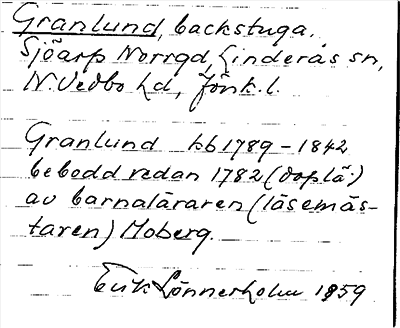 Granlund, backstuga.
Sjöarp Norrgd, Linderås sn,
N. Vedbo hd, Jönk. l.
Granlund kb 1789-1842
bebodd redan 1782 (doplä:)
av barnaläraren (läsemäs-
taren) Moberg.
Erik Lönnerholm 1959